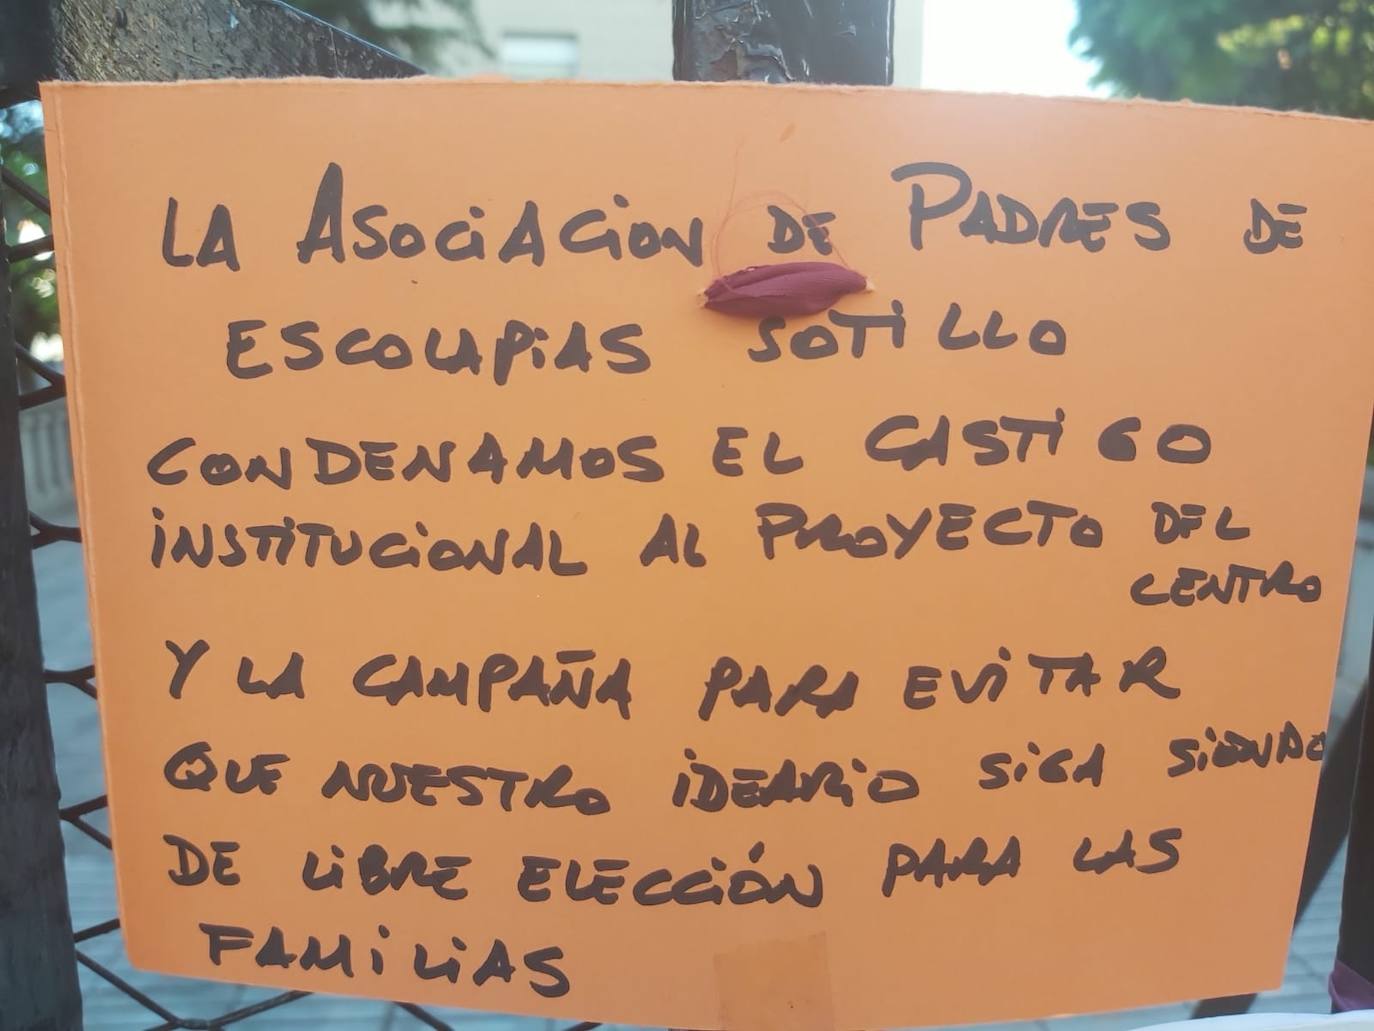 LA ASOCIACION DE PADRES DE
ESCOLAPIAS SOTILLO
CONDENAMOS EL CASTIGO
INSTITUCIONAL AL PROYECTO DEL
CENTRO
Y LA CAMPAÑA PARA EVITAR
QUE NUESTRO IDEARIO SIGA SIENDO
DE LIBRE ELECCIÓN PARA LAS
FAMILIAS